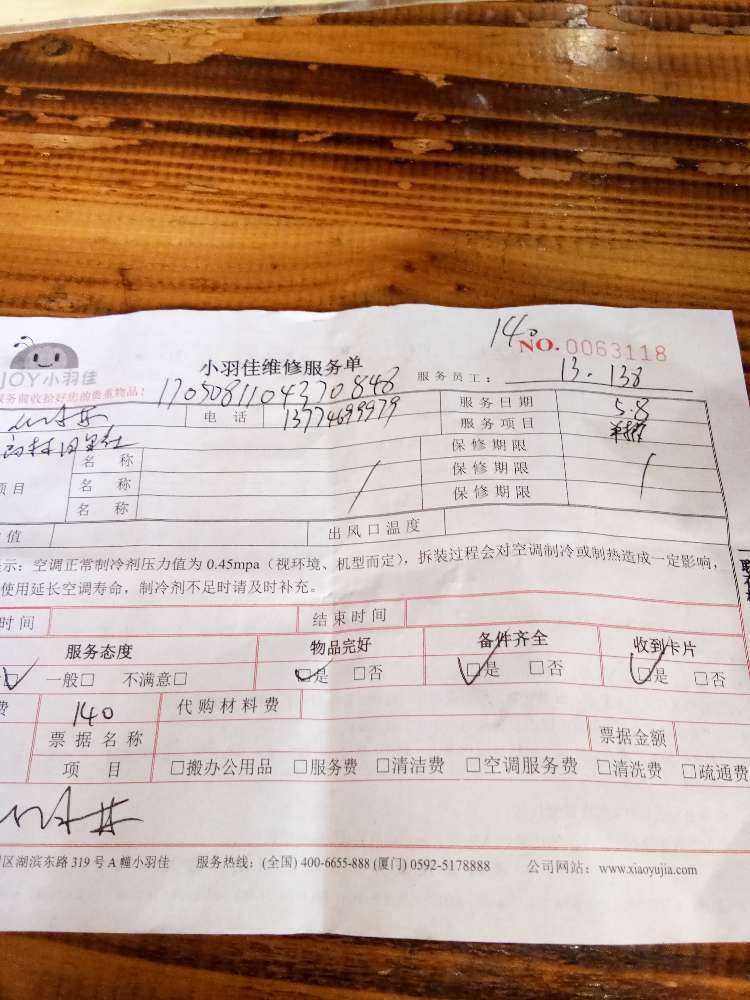 140
NO. 0063118
JOY小羽佳
小羽佳维修服务单
服务员工: 13. 138
服务前收拾好您的贵重物品!
1705081104370848
电话 13774699979 服务日期 5.8
服务项目
名称 保修期限
项目 名称 保修期限
名称 保修期限
值 出风口温度
示: 空调正常制冷剂压力值为 0.45mpa (视环境、机型而定), 拆装过程会对空调制冷或制热造成一定影响,
使用延长空调寿命, 制冷剂不足时请及时补充。
时间 结束时间
服务态度 物品完好 备件齐全 收到卡片
□ 一般□ 不满意□ □是 □否 □是 □否 □是 □否
费 140 代购材料费
票据名称 票据金额
项目 □搬办公用品 □服务费 □清洁费 □空调服务费 □清洗费 □疏通费
区湖滨东路 319 号 A 幢小羽佳 服务热线: (全国) 400-6655-888 (厦门) 0592-5178888 公司网站: www.xiaoyujia.com